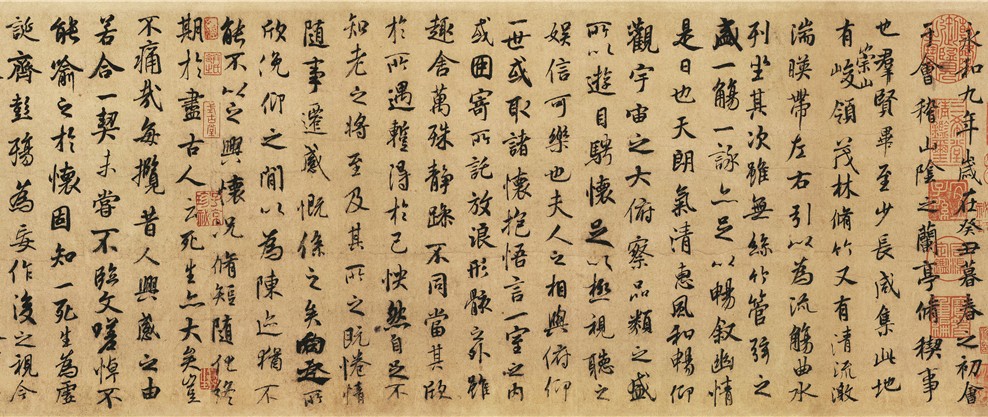 永和九年歲在癸丑暮春之初會
于會稽山陰之蘭亭脩稧事
也羣賢畢至少長咸集此地
有崇山峻領茂林脩竹又有清流激
湍暎帶左右引以為流觴曲水
列坐其次雖無絲竹管弦之
盛一觴一詠亦足以暢叙幽情
是日也天朗氣清惠風和暢仰
觀宇宙之大俯察品類之盛
所以遊目騁懷足以極視聽之
娛信可樂也夫人之相與俯仰
一世或取諸懷抱悟言一室之內
或因寄所託放浪形骸之外雖
趣舍萬殊靜躁不同當其欣
於所遇蹔得於己怏然自足不
知老之將至及其所之既惓情
隨事遷感慨係之矣向之所
欣俛仰之閒以為陳迹猶不
能不以之興懷況脩短隨化終
期於盡古人云死生亦大矣豈
不痛哉每攬昔人興感之由
若合一契未嘗不臨文嗟悼不
能喻之於懷固知一死生為虛
誕齊彭殤為妄作後之視今